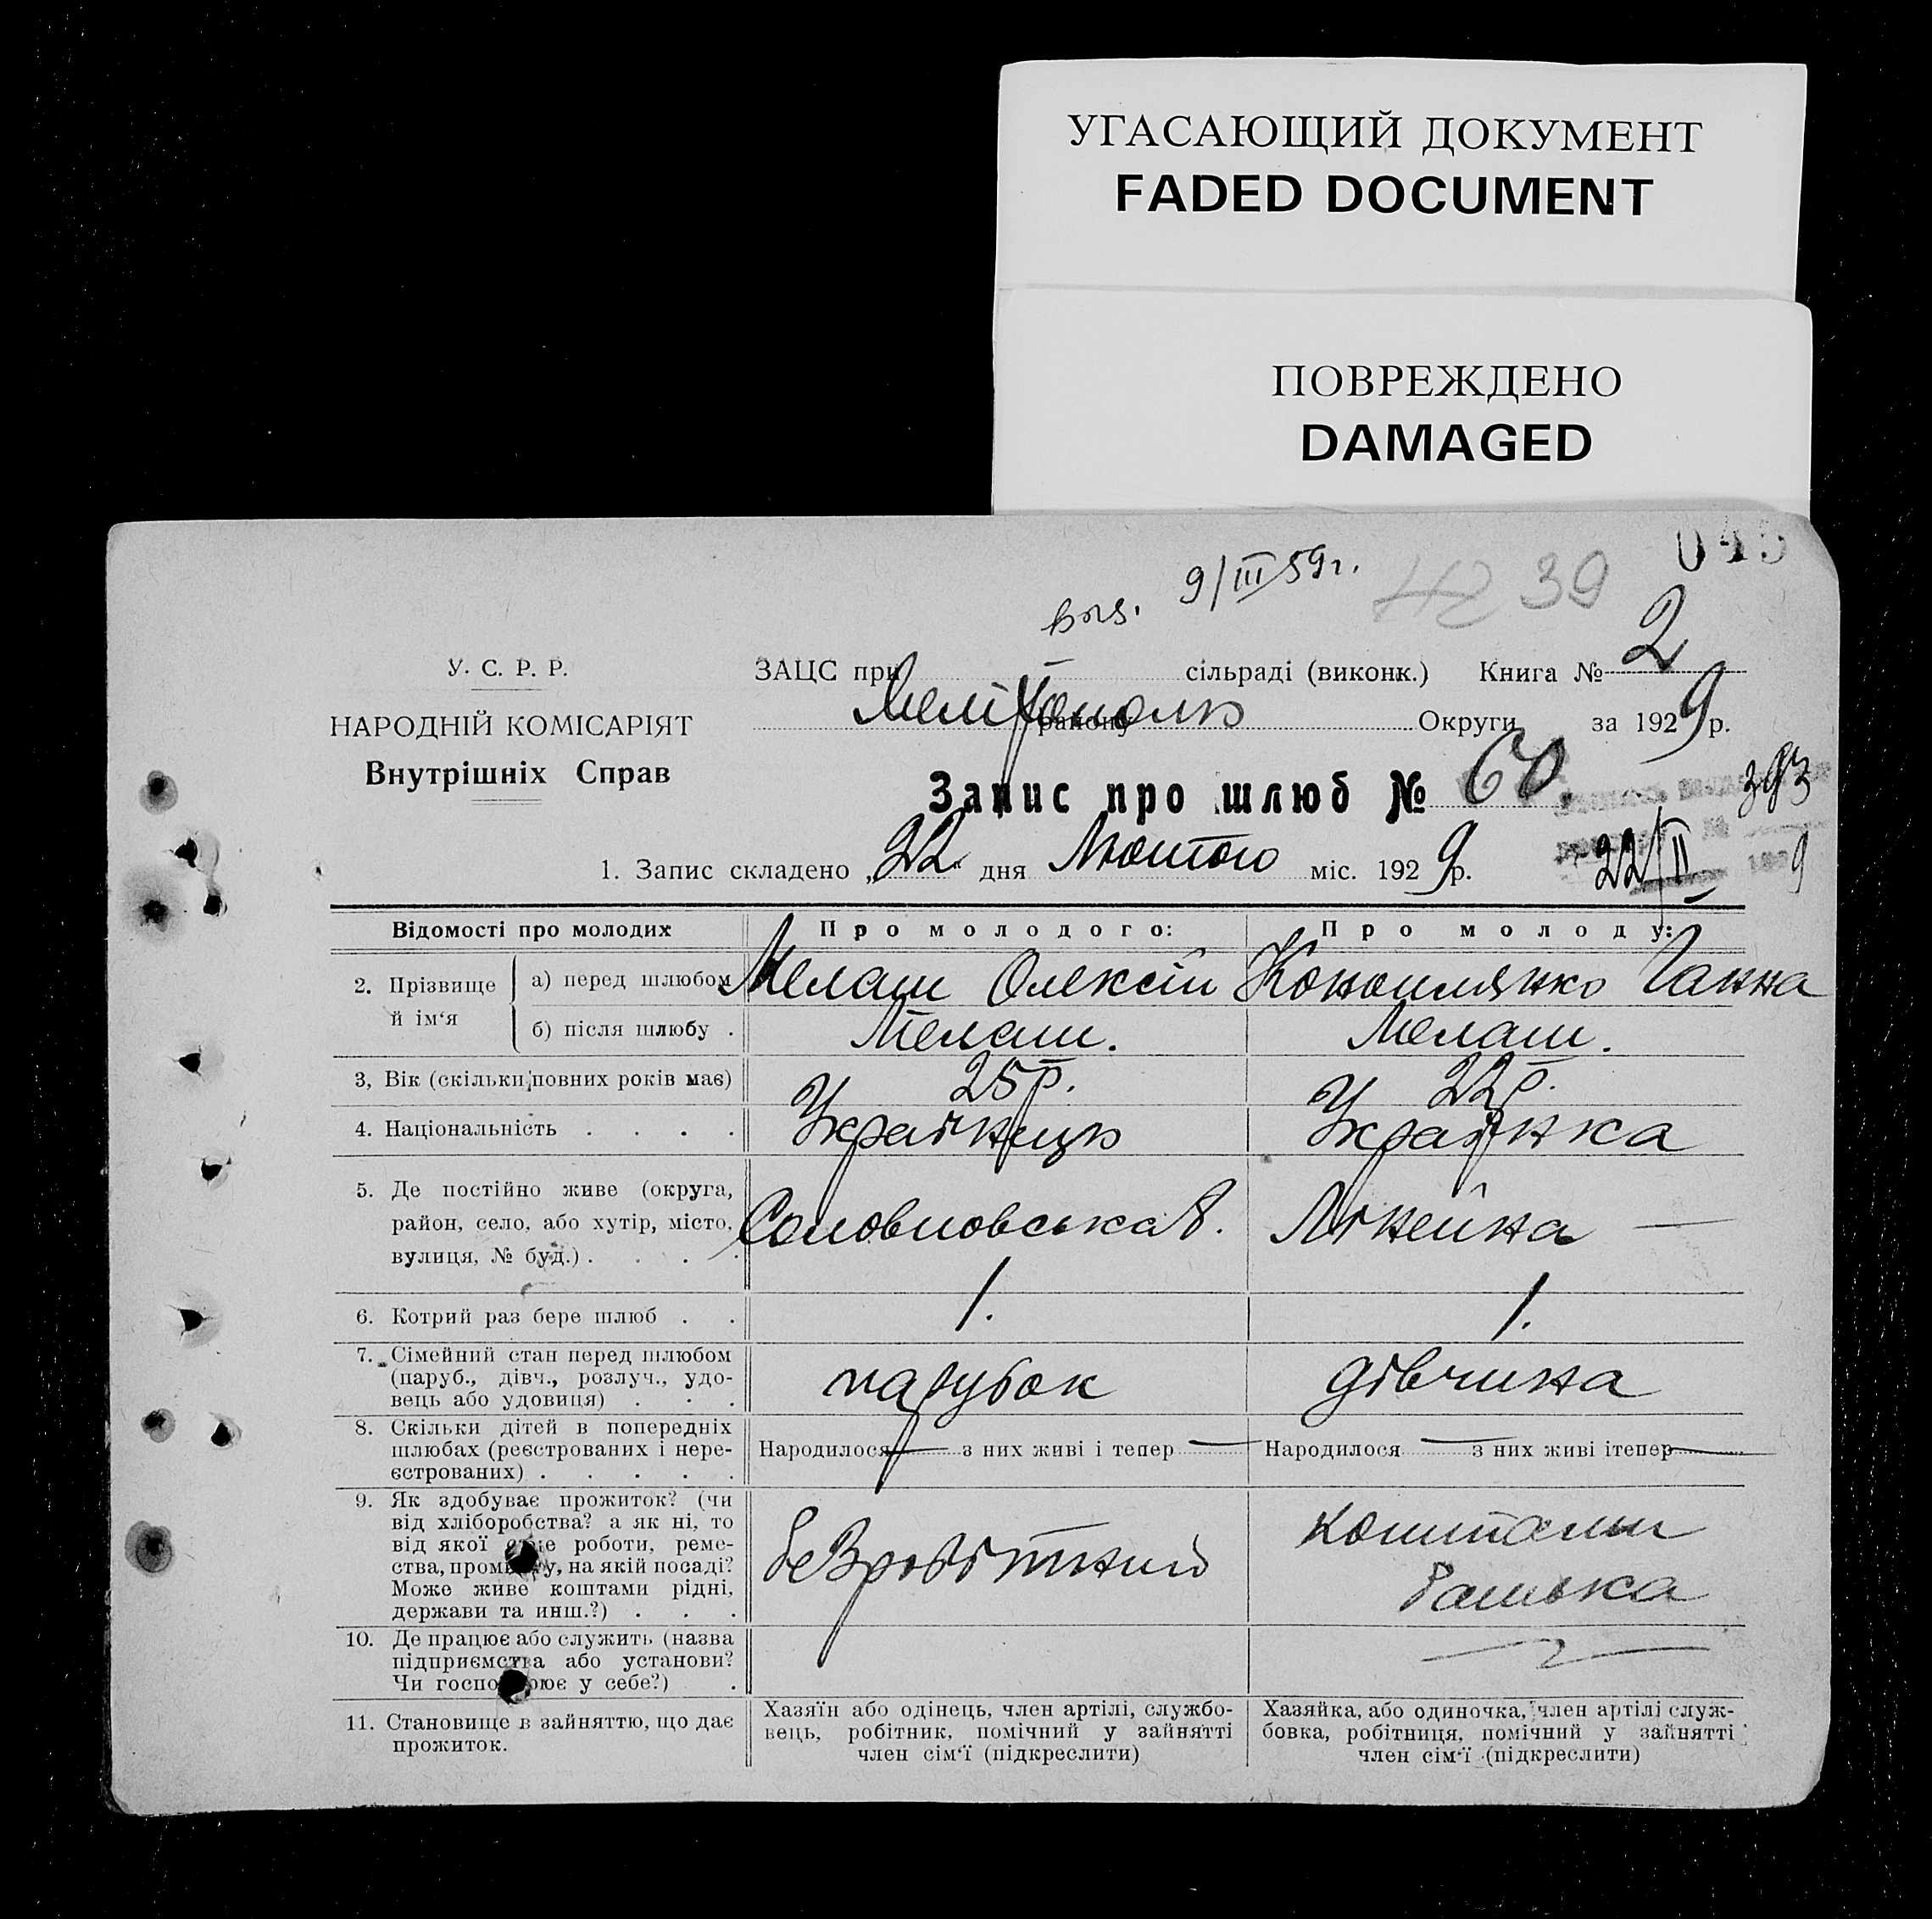 УГАСАЮЩИЙ ДОКУМЕНТ
FADED DOCUMENT
ПОВРЕЖДЕНО
DAMAGED
045
9/III 59г.
39
У. С. Р. Р.
НАРОДНІЙ КОМІСАРІЯТ
Внутрішніх Справ
ЗАЦС при сільраді (виконк.) Книга № 2
Мелітополь району Округи за 1929 р.
Запис про шлюб № 60.
393
1. Запис складено „22“ дня Лютого міс. 1929 р.
22/II 9
Відомості про молодих
Про молодого:
Про молоду:
2. Прізвище й ім‘я
а) перед шлюбом
Мелаш Олексій
Коноплянко Ганна
б) після шлюбу .
Мелаш.
Мелаш.
3, Вік (скільки повних років має)
25 р.
22 р.
4. Національність . . . .
Українець
Українка
5. Де постійно живе (округа,
район, село, або хутір, місто,
вулиця, № буд.) . . . .
8.
Лінейна —
6. Котрий раз бере шлюб . .
1.
1.
7. Сімейний стан перед шлюбом
(паруб., дівч., розлуч., удо-
вець або удовиця) . . .
парубок
дівчина
8. Скільки дітей в попередніх
шлюбах (реєстрованих і нере-
єстрованих) . . . . .
Народилося — з них живі і тепер —
Народилося — з них живі ітепер —
9. Як здобуває прожиток? (чи
від хліборобства? а як ні, то
від якої роботи, реме-
ства, промислу, на якій посаді?
Може живе коштами рідні,
держави та инш.?) . . .
безробітний
коштами
батька
10. Де працює або служить (назва
підприємства або установи?
Чи господарює у себе?) .
11. Становище в зайняттю, що дає
прожиток.
Хазяїн або одінець, член артілі, службо-
вець, робітник, помічний у зайнятті
член сім‘ї (підкреслити)
Хазяйка, або одиночка, член артілі служ-
бовка, робітниця, помічний у зайнятті
член сім‘ї (підкреслити)